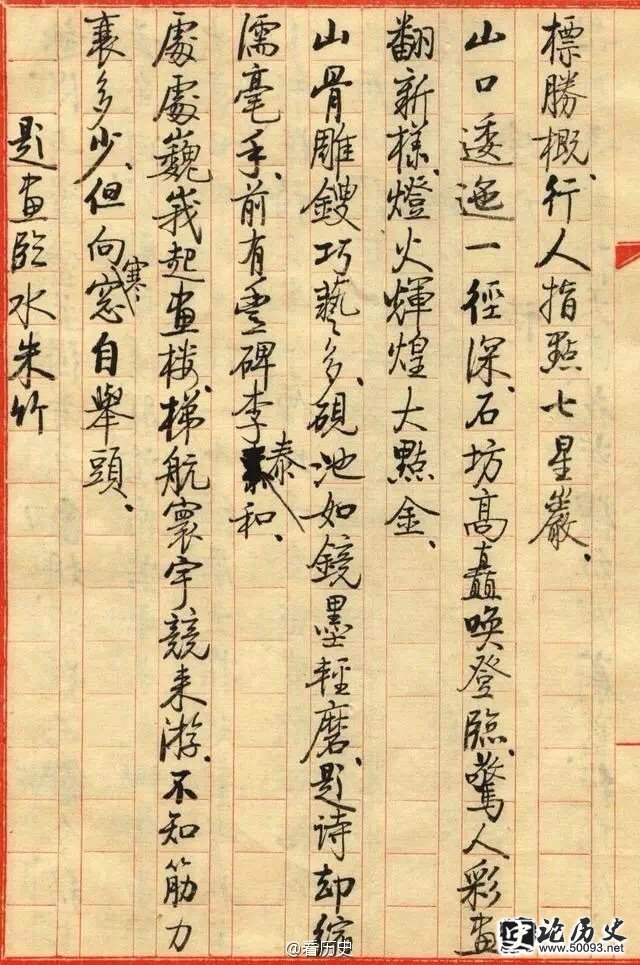 標勝概、行人指點七星巖、
山口逶迤一徑深、石坊高矗喚登臨、驚人彩畫
翻新樣、燈火輝煌大點金、
山骨雕鎪巧藝多、硯池如鏡墨輕磨、題诗却縮
濡毫手、前有豐碑李泰和、
處處巍峩起畫楼、梯航寰宇競来游、不知筋力
衰多少、但向寒窓自舉頭、
題畫臨水朱竹
@看历史
论历史
www.50093.net